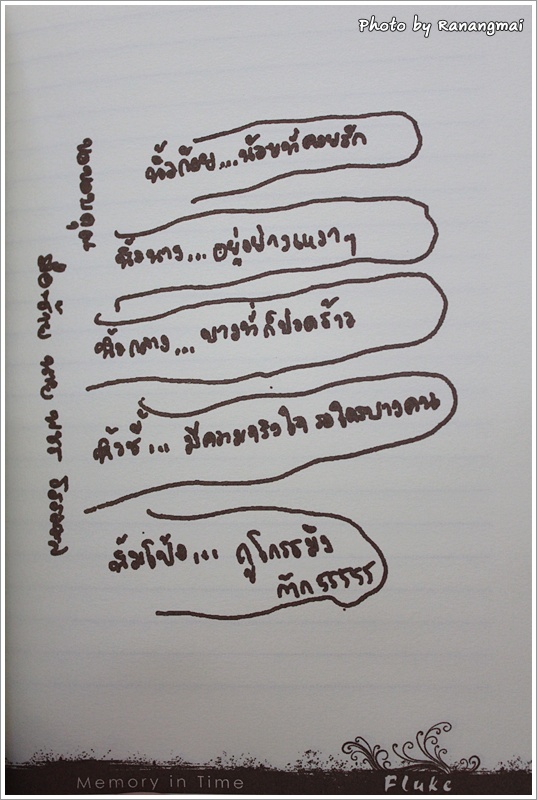 Photo by Ranangmai
นิ้วก้อย...น้อยที่คอยรัก
นิ้วนาง...อยู่อย่างเหงาๆ
นิ้วกลาง...บางทีก็ปวดร้าว
นิ้วชี้...มีความจริงใจ รอใครบางคน
นิ้วโป้ง... กูโกรธมึง
Memory in Time
Fluke